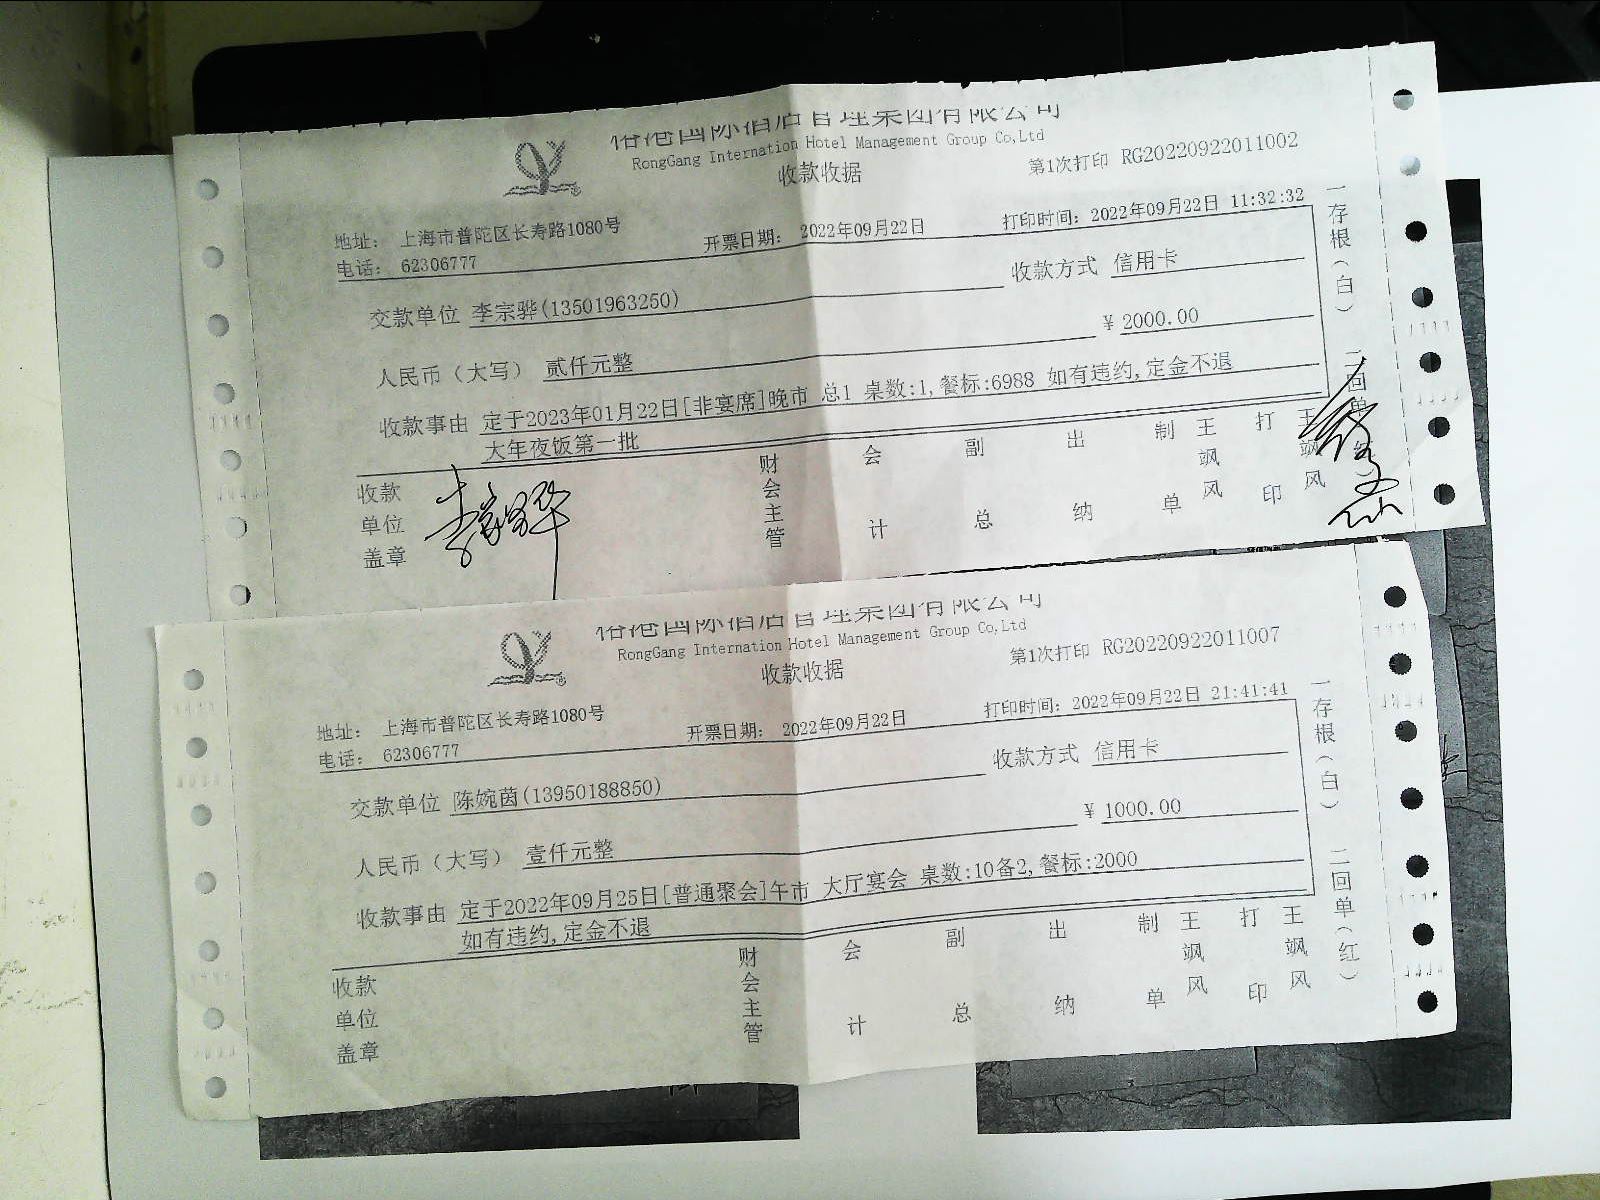 格港国际酒店管理集团有限公司
RongGang Internation Hotel Management Group Co,Ltd
收款收据
第1次打印 RG20220922011002
地址: 上海市普陀区长寿路1080号
电话: 62306777
开票日期: 2022年09月22日
打印时间: 2022年09月22日 11:32:32
交款单位 李宗骅(13501963250)
收款方式 信用卡
人民币(大写) 贰仟元整
¥ 2000.00
收款事由 定于2023年01月22日[非宴席]晚市 总1 桌数:1,餐标:6988 如有违约,定金不退
大年夜饭第一批
收款单位盖章
财会主管
会计
副总
出纳
制单
王飒风
打印
王飒风
一存根(白)
二回单(红)
格港国际酒店管理集团有限公司
RongGang Internation Hotel Management Group Co,Ltd
收款收据
第1次打印 RG20220922011007
地址: 上海市普陀区长寿路1080号
电话: 62306777
开票日期: 2022年09月22日
打印时间: 2022年09月22日 21:41:41
交款单位 陈婉茵(13950188850)
收款方式 信用卡
人民币(大写) 壹仟元整
¥ 1000.00
收款事由 定于2022年09月25日[普通聚会]午市 大厅宴会 桌数:10备2,餐标:2000
如有违约,定金不退
收款单位盖章
财会主管
会计
副总
出纳
制单
王飒风
打印
王飒风
一存根(白)
二回单(红)